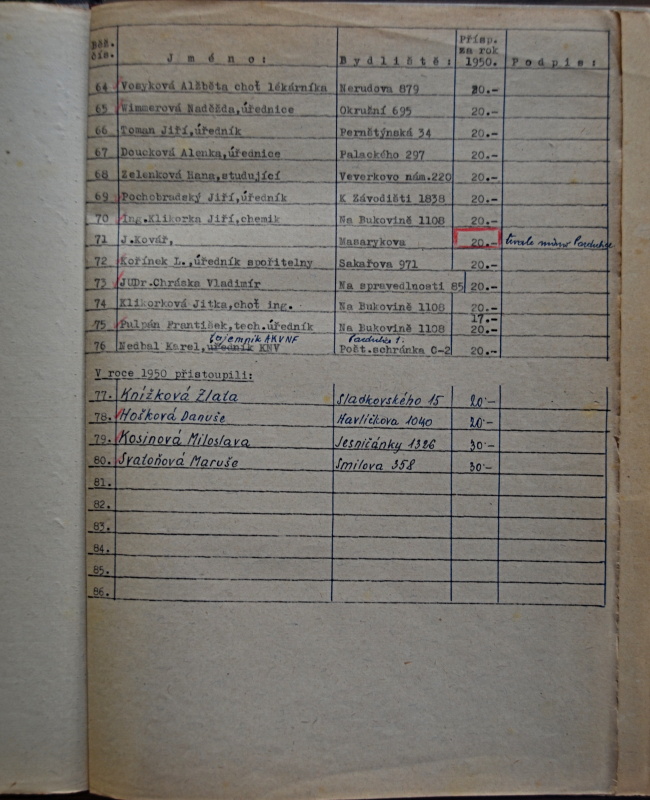 Běž. čís. Jméno: Bydliště: Přísp. za rok 1950. Podpis:
64 Vosyková Alžběta choť lékárníka Nerudova 879 20.-
65 Wimmerová Naděžda,úřednice Okružní 695 20.-
66 Toman Jiří,úředník Pernštýnská 34 20.-
67 Doucková Alenka,úřednice Palackého 297 20.-
68 Zelenková Hana,studující Veverkovo nám.220 20.-
69 Pochobradský Jiří,úředník K Závodišti 1838 20.-
70 Ing.Klikorka Jiří,chemik Na Bukovině 1108 20.-
71 J.Kovář, Masarykova 20.- trvale mimo Pardubice
72 Kořínek L.,úředník spořitelny Sakařova 971 20.-
73 JUDr.Chráska Vladimír Na spravedlnosti 85 20.-
74 Klikorková Jitka,choť ing. Na Bukovině 1108 20.-
17.-
75 Pulpán František,tech.úředník Na Bukovině 1108 20.-
tajemník AKVNF Pardubice 1.
76 Nedbal Karel,úředník KNV Pošt.schránka C-2 20.-
V roce 1950 přistoupili:
77. Knížková Zlata Sladkovského 15 20.-
78. Hošková Danuše Havlíčkova 1040 20.-
79. Kosinová Miloslava Jesničánky 1326 30.-
80. Svatoňová Maruše Smilova 358 30.-
81.
82.
83.
84.
85.
86.